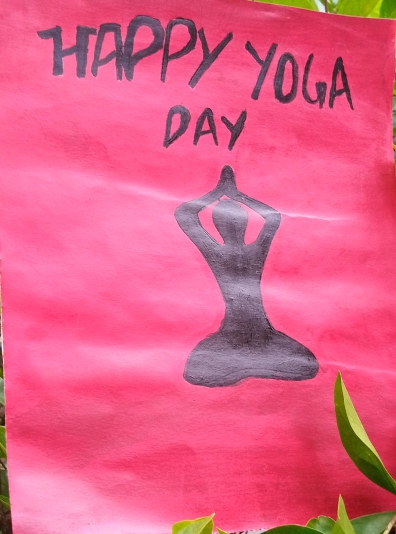 HAPPY YOGA
DAY